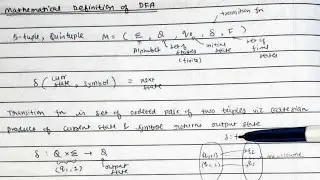 Mathematical Definition of DFA
transition fn
5-tuple, Quintuple M = ( Σ, Q, q₀, δ, F )
Alphabet set of states (finite) initial state set of final states
δ ( curr state, symbol ) = next state
Transition fn is set of ordered pair of two triples viz Cartesian
product of current state & symbol returns output state
δ :
δ : Q × Σ → Q
output state